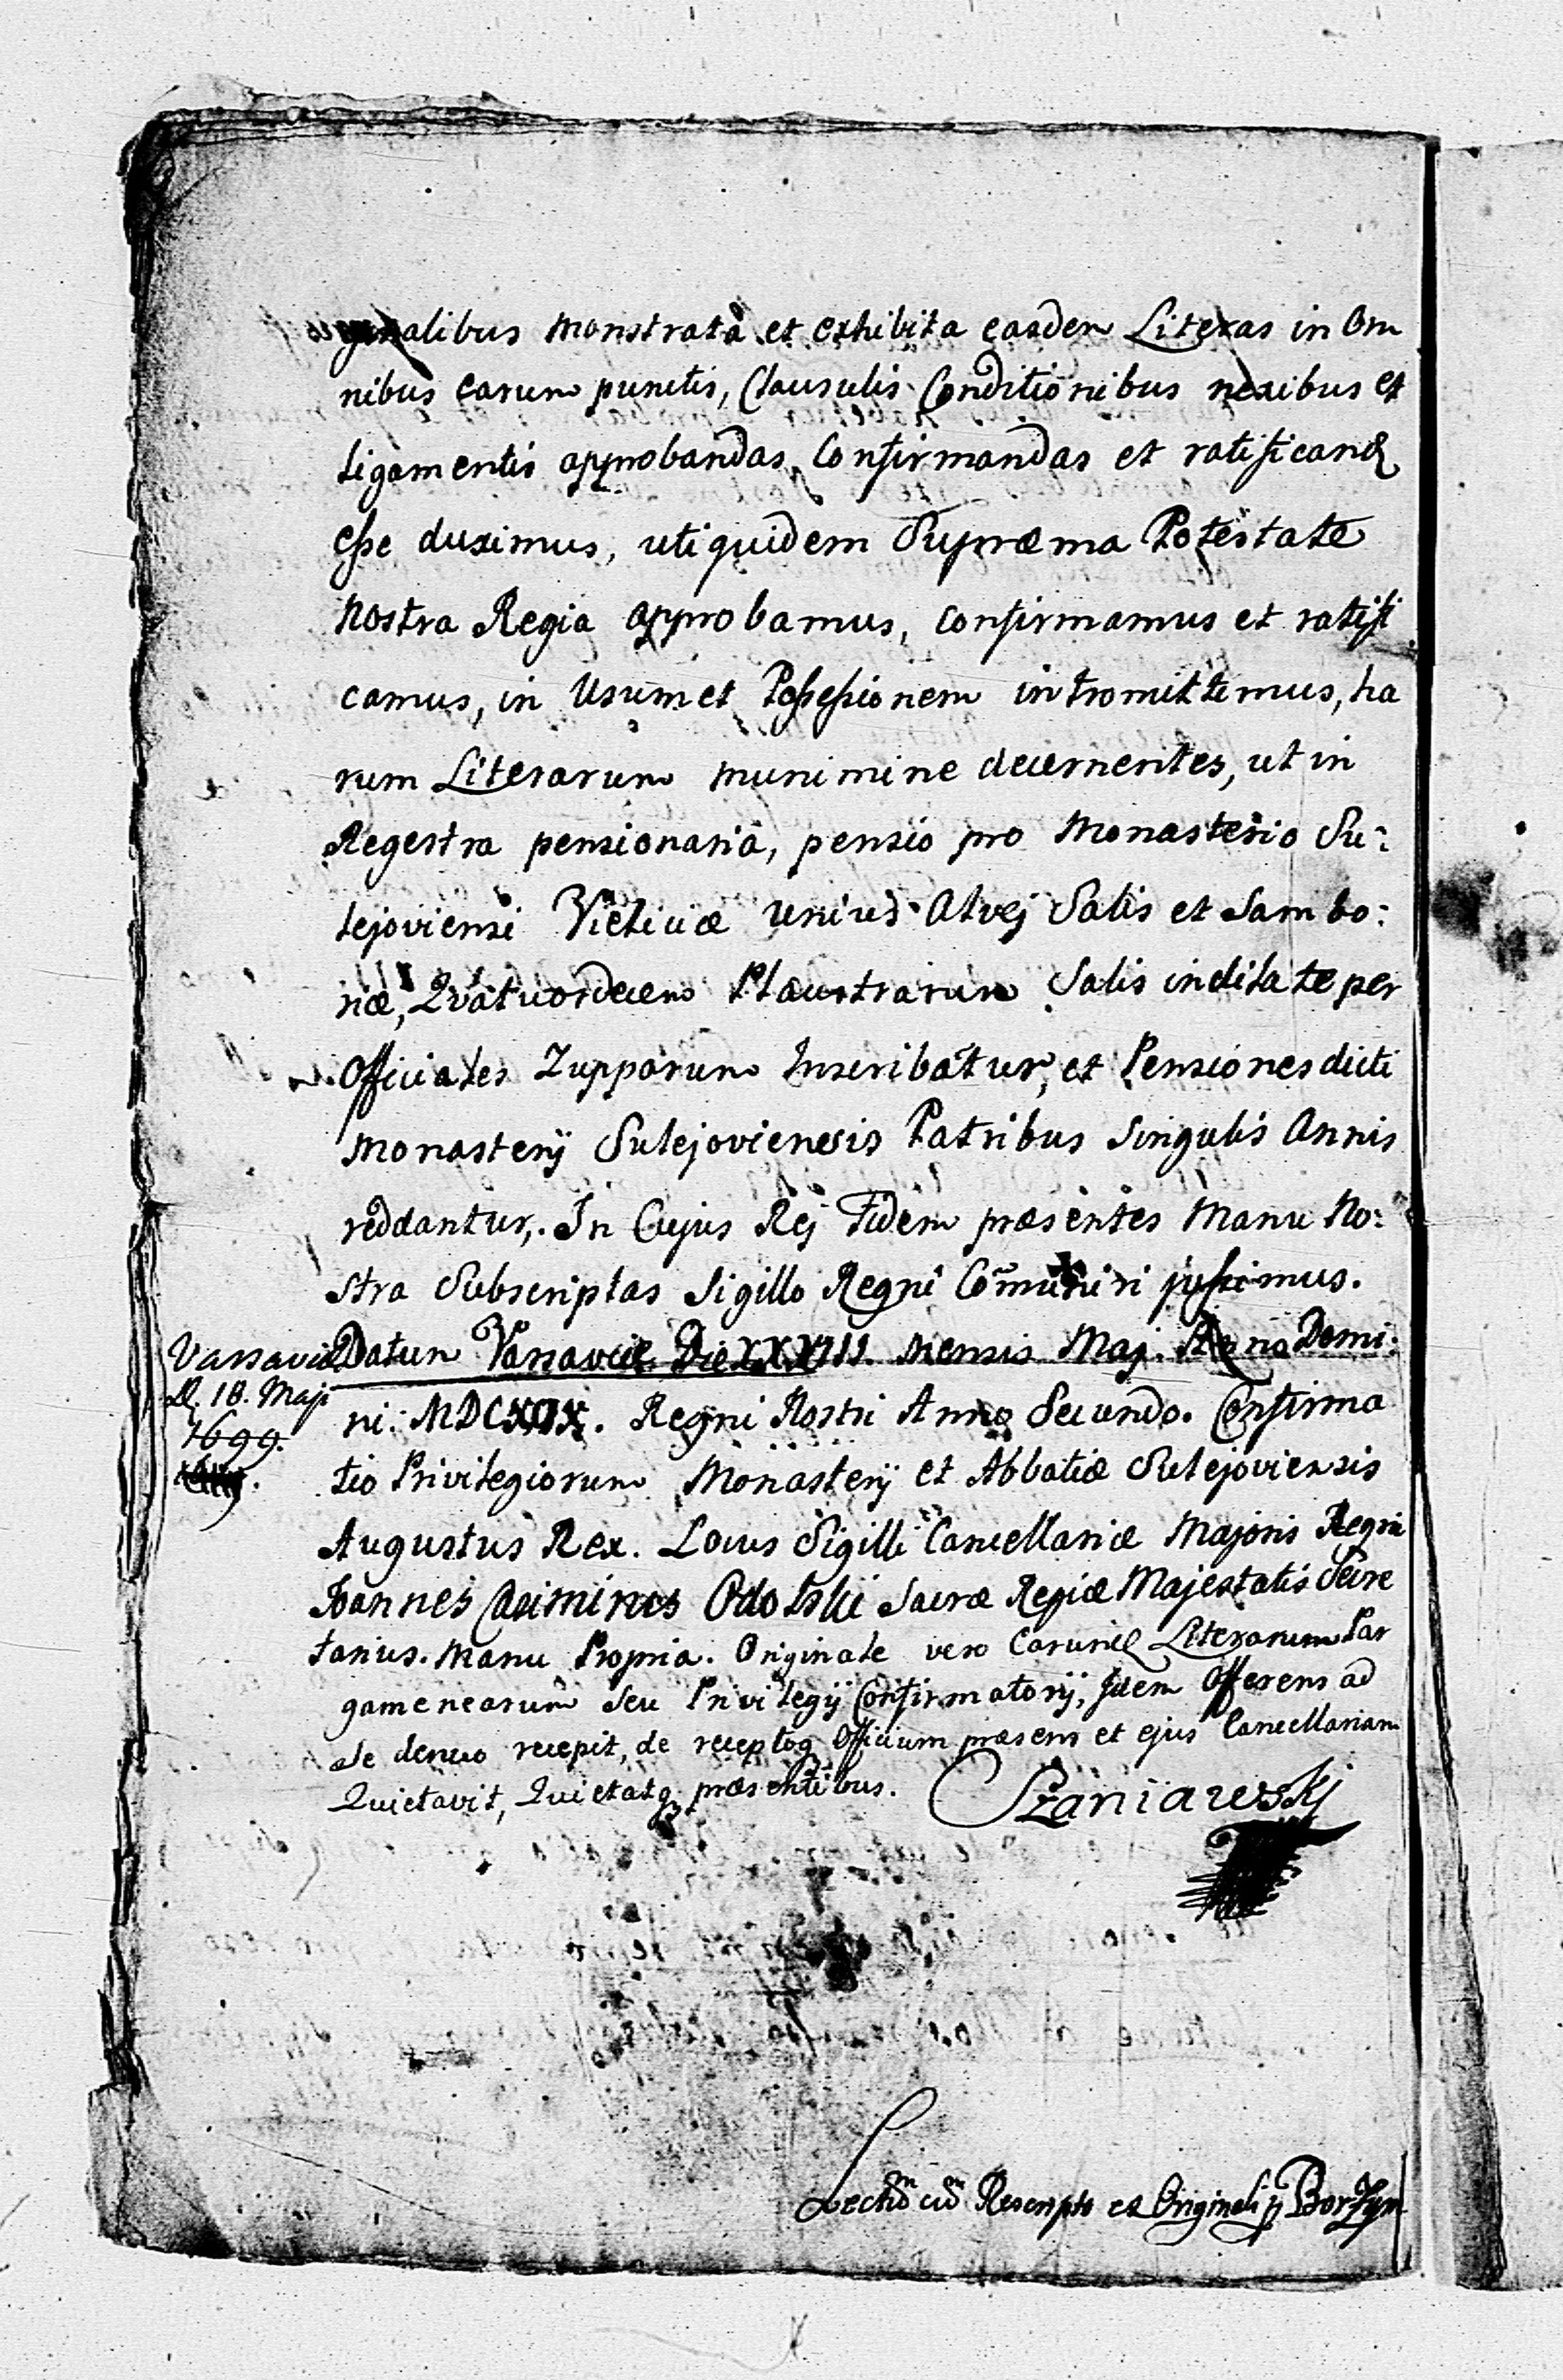 ginalibus monstrata et exhibita easdem Literas in Om
nibus earum punctis, Clausulis Conditionibus nexibus et
ligamentis approbandas Confirmandas et ratificand
esse duximus, uti quidem Supræma Potestate
nostra Regia approbamus, confirmamus et ratifi
camus, in Usum et Possessionem intromittimus, ha
rum Literarum munimine decernentes, ut in
Regestra pensionaria, pensio pro Monasterio Su:
lejoviensi Vieliciæ unius Alvej Salis et Sambo:
riæ, Qvatuordecem Plaustrarum Salis indilate per
Officiales Zupparum Inscribatur, et Pensiones dicti
Monasterij Sulejoviensis Patribus Singulis Annis
reddantur. In Cujus Rej Fidem præsentes Manu No:
stra Subscriptas Sigillo Regni Com̃uniri jussimus.
Varsaviæ
D. 18. Maji
1699.
Datum Varsaviæ Die mensis Maj. Anno Domi:
ni: Regni Nostri Anno Secundo. Confirma
tio Privilegiorum Monasterij et Abbatiæ Sulejoviensis
Augustus Rex. Locus Sigilli Cancellariæ Majoris Regni
Joannes Casimirus Odolski Sacræ Regiæ Majestatis Secre
tarius. Manu Propria. Originale vero Literarum Par
gamenearum seu Privilegij Confirmatorij, Idem Offerens ad
se denuo recepit, de receptoq Officium præsens et ejus Cancellariam
Quietavit, Quietatq præsentibus. Szaniawskj
Lectũ cũ Rescripto et Originali p Borzym